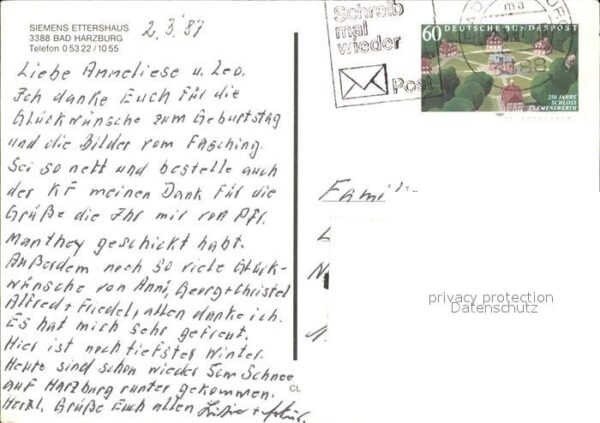 SIEMENS ETTERSHAUS
3388 BAD HARZBURG
Telefon 0 53 22 / 10 55
2.3.87
Liebe Anneliese u. Leo.
Ich danke Euch für die
Glückwünsche zum Geburtstag
und die Bilder vom Fasching.
Sei so nett und bestelle auch
der KF meinen Dank für die
Grüße die Ihr mir von Pfr.
Manthey geschickt habt.
Außerdem noch so viele Glück-
wünsche von Anni, Georg + Christel
Alfred + Friedel, allen danke ich.
Es hat mich sehr gefreut.
Hier ist noch tiefster Winter.
Heute sind schon wieder 5cm Schnee
auf Harzburg runter gekommen.
Herzl. Grüße Euch allen
CL
Schreib
mal
wieder
Post
ma
60 DEUTSCHE BUNDESPOST
250 JAHRE
SCHLOSS
CLEMENSWERTH
1987
Famil
privacy protection
Datenschutz